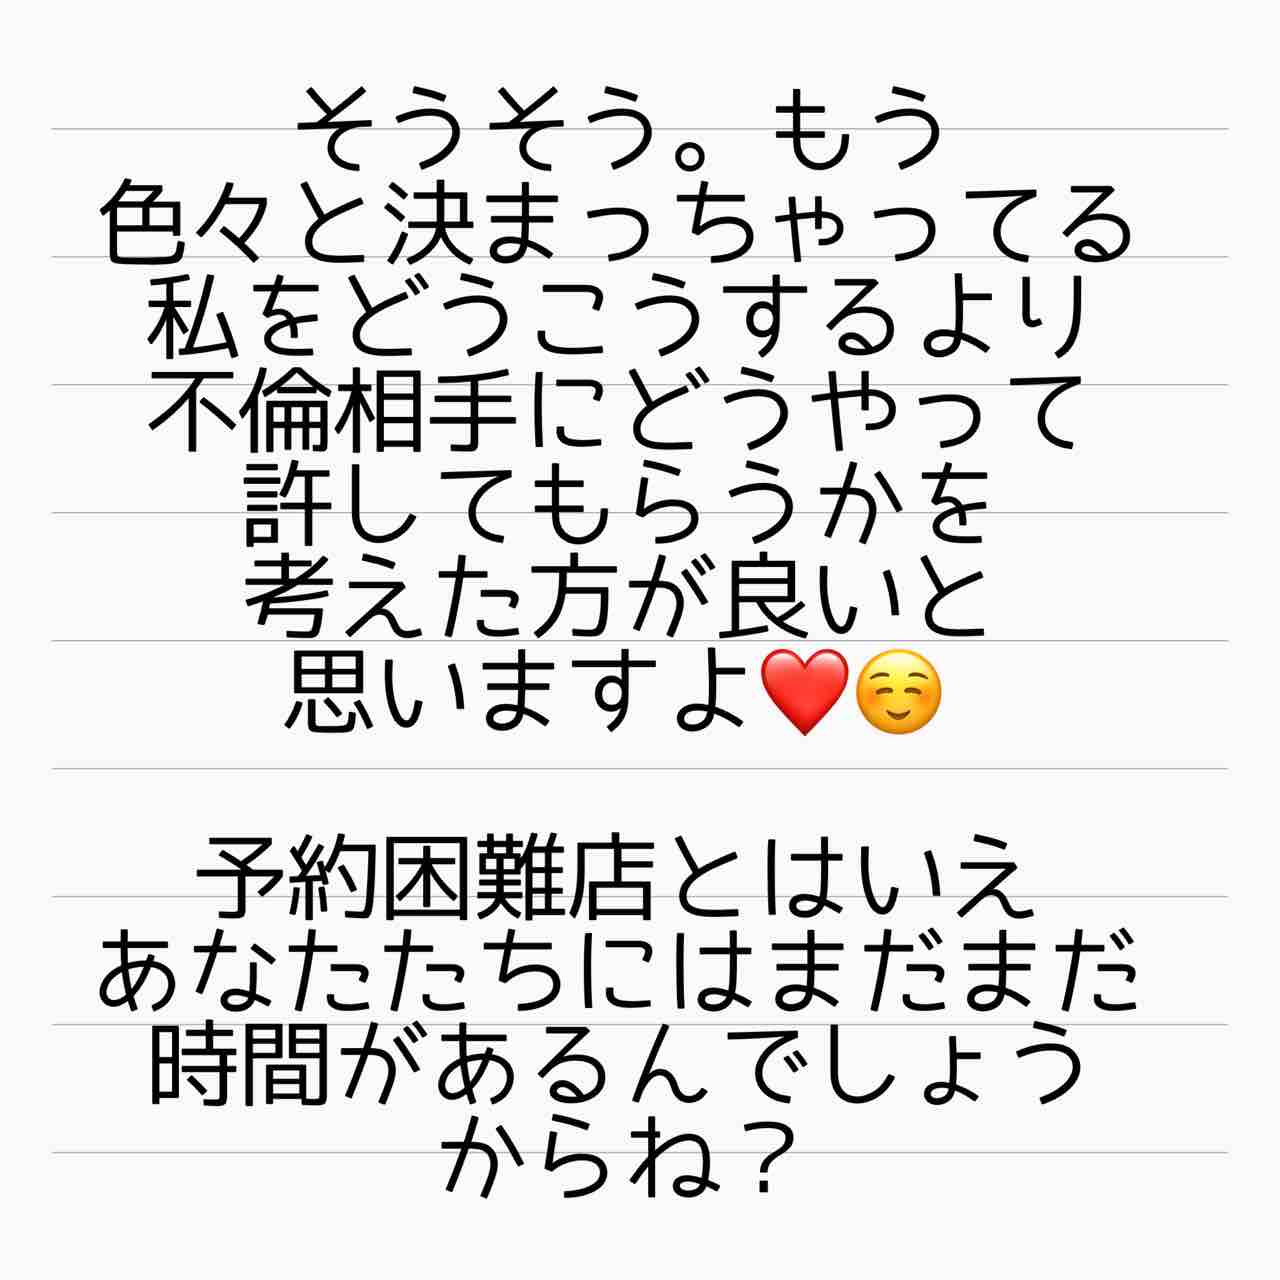 そうそう。もう
色々と決まっちゃってる
私をどうこうするより
不倫相手にどうやって
許してもらうかを
考えた方が良いと
思いますよ❤️☺️
予約困難店とはいえ
あなたたちにはまだまだ
時間があるんでしょう
からね？